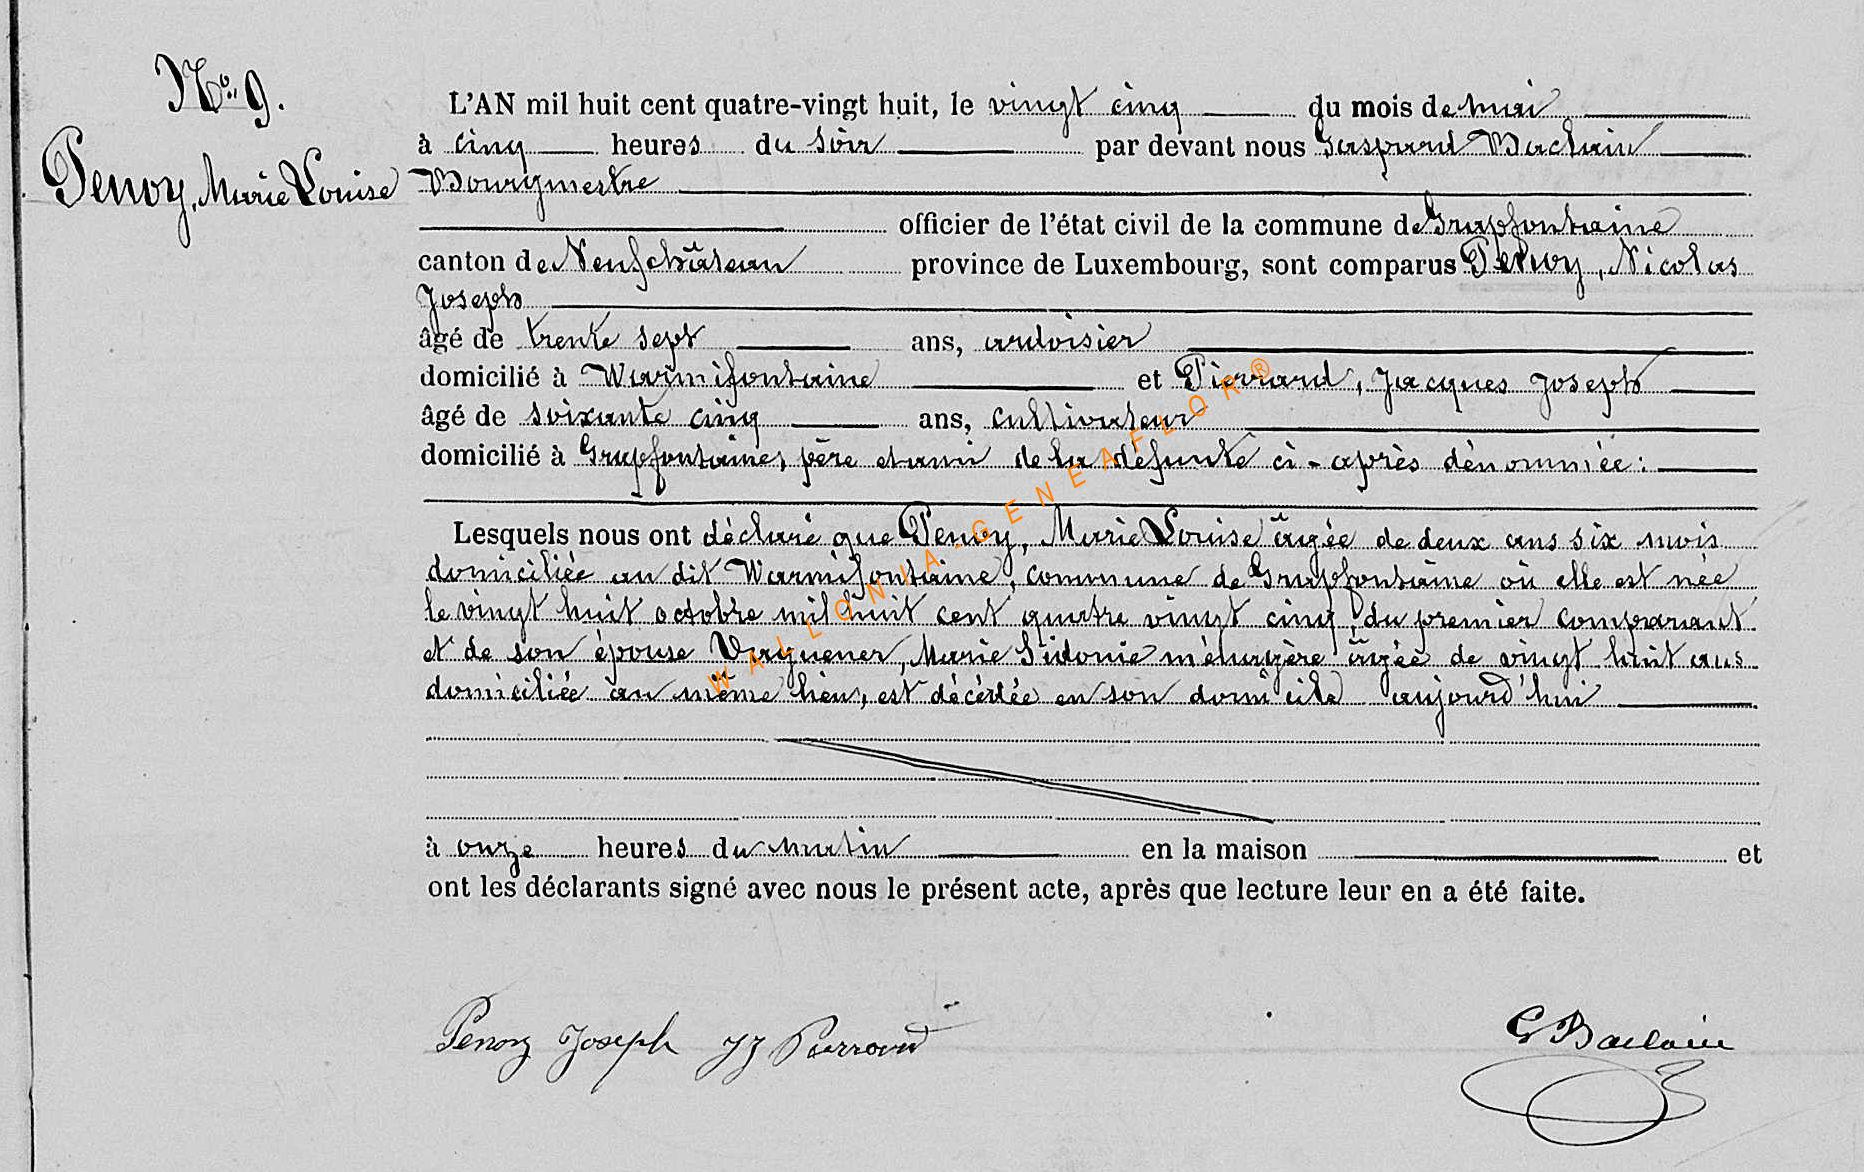 N° 9.
Penoy, Marie Louise
L'AN mil huit cent quatre-vingt huit, le vingt cinq du mois de mai
à cinq heures du soir par devant nous Gaspard Baclain
Bourgmestre
officier de l'état civil de la commune de Grapfontaine
canton de Neufchâteau province de Luxembourg, sont comparus Penoy, Nicolas
Joseph
âgé de trente sept ans, ardoisier
domicilié à Warmifontaine et Pierrard, Jacques Joseph
âgé de soixante cinq ans, cultivateur
domicilié à Grapfontaine, père et ami de la défunte ci-après dénommée:
Lesquels nous ont déclaré que Penoy, Marie Louise âgée de deux ans six mois
domiciliée au dit Warmifontaine, commune de Grapfontaine où elle est née
le vingt huit octobre mil huit cent quatre vingt cinq, du premier comparant
et de son épouse Vaguener, Marie Sidonie ménagère âgée de vingt huit ans
domiciliée au même lieu, est décédée en son domicile aujourd'hui
à onze heures du matin en la maison et
ont les déclarants signé avec nous le présent acte, après que lecture leur en a été faite.
Penoy Joseph JJ Pierrard G Baclain
WALLONIA-GENEAFLOR®